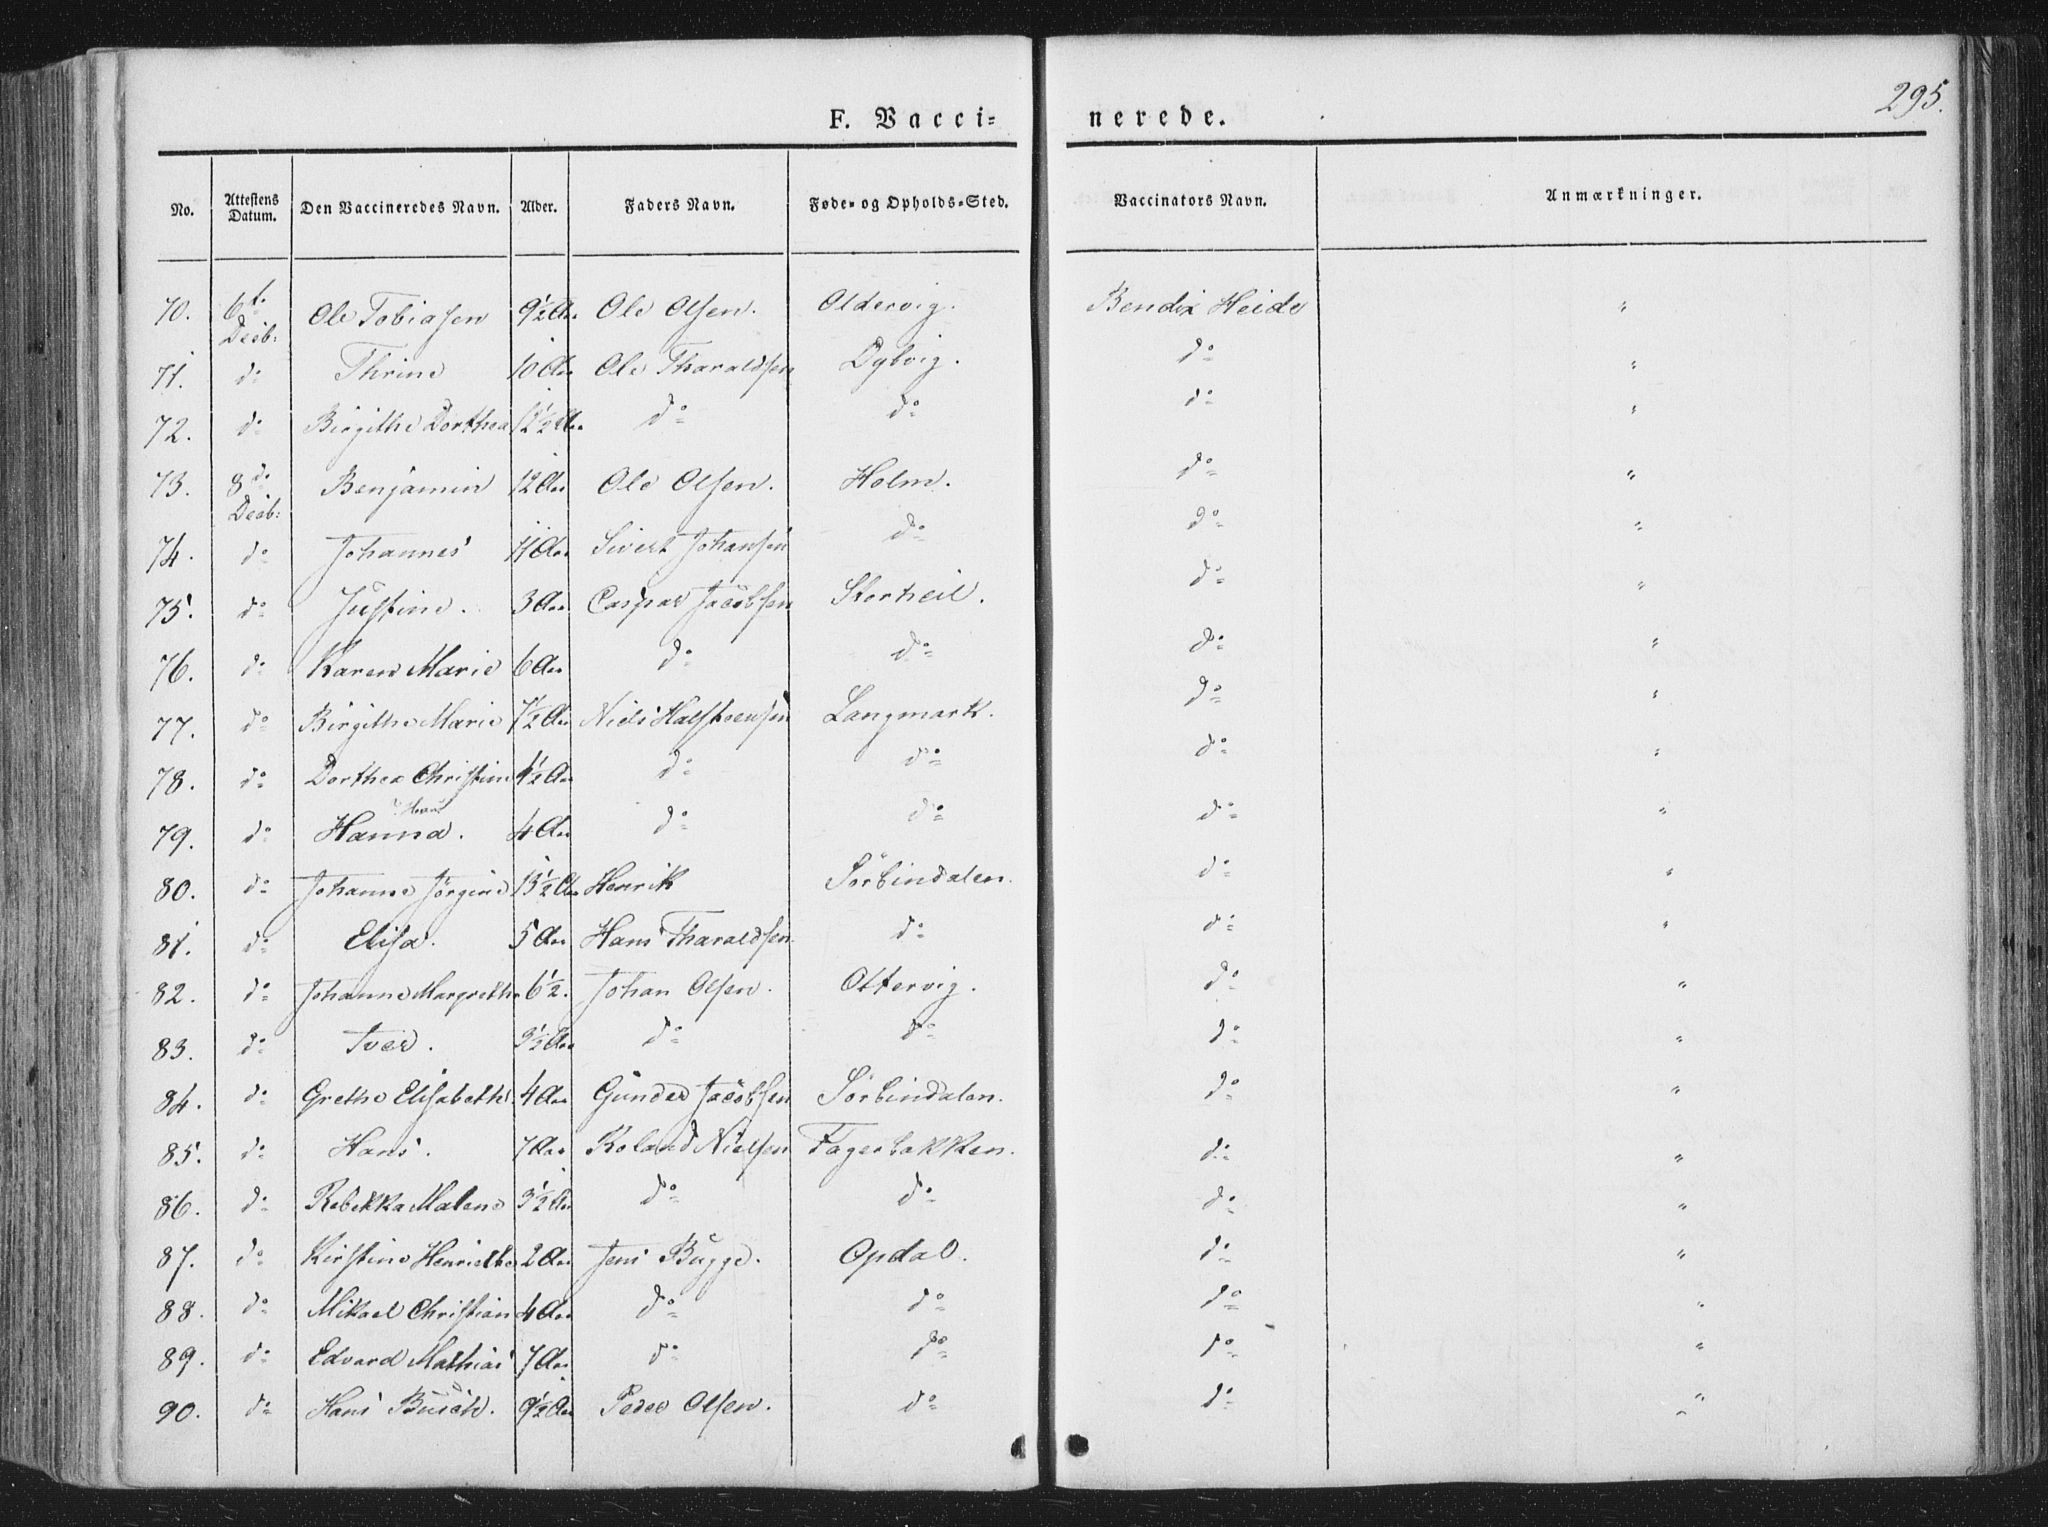 295.
F. Vacci= nerede.
No. Attestens Datum. Den Vaccineredes Navn. Alder. Faders Navn. Føde= og Opholds=Sted. Vaccinators Navn. Anmærkninger.
70. 6te Decb: Ole Tobiasen 9½ Aar Ole Olsen. Oldervig. Bendix Heide "
71. do Thrine 10 Aar Ole Tharaldsen Dybvig. do "
72. do Birgithe Dorthea 12½ Aar do do do "
73. 8de Decb: Benjamin 12 Aar Ole Olsen. Holm. do "
74. do Johannes 11 Aar Sivert Johansen do do "
75. do Justine. 3 Aar Caspar Jacobsen Storheil. do "
76. do Karen Marie 6 Aar do do do "
77. do Birgithe Marie 7½ Aar Niels Halsteensen Langmark. do "
78. do Dorthea Christine 4½ Aar do do do "
79. do Hanna. 4 Aar do do do "
80. do Johanne Jørgine 13½ Aar Henrik Sörbindalen. do "
81. do Elisa. 5 Aar Hans Tharaldsen do do "
82. do Johanne Margrethe 6½. Johan Olsen. Ottervig. do "
83. do Iver. 9½ Aar do do do "
84. do Grethe Elisabeth 4 Aar Gunder Jacobsen Sörbindalen. do "
85. do Hans. 7 Aar Roland Nielsen Fagerbakken. do "
86. do Rebekka Malene 3½ Aar do do do "
87. do Kirstine Henriethe 2 Aar Jens Bugge. Opdal. do "
88. do Mikael Christian 4 Aar do do do "
89. do Edvard Mathias 7 Aar do do do "
90. do Hans Busch. 9½ Aar Peder Olsen. do do "